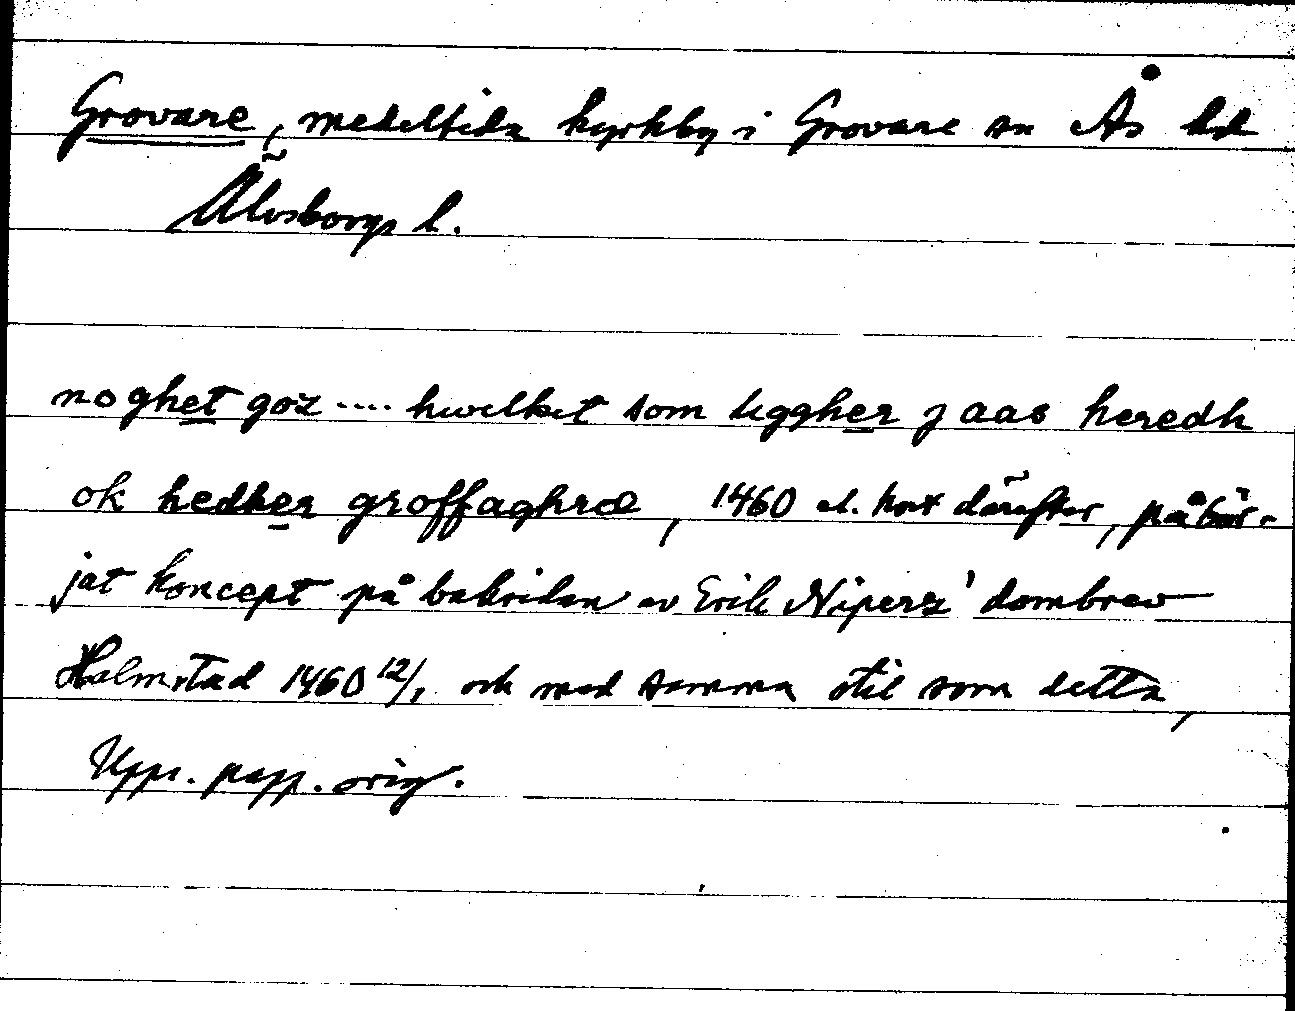 Grovare, medeltida kyrkby i Grovare sn Ås hd
Älvsborgs l.
noghet goz .... hwilket som liggher j aas heredh
ok hedher groffaghræ, 1460 el. kort därefter, påbör-
jat koncept på baksidan av Erik Nipersz' dombrev
Halmstad 1460 12/1 och med samma stil som detta,
Upps. papp. orig.